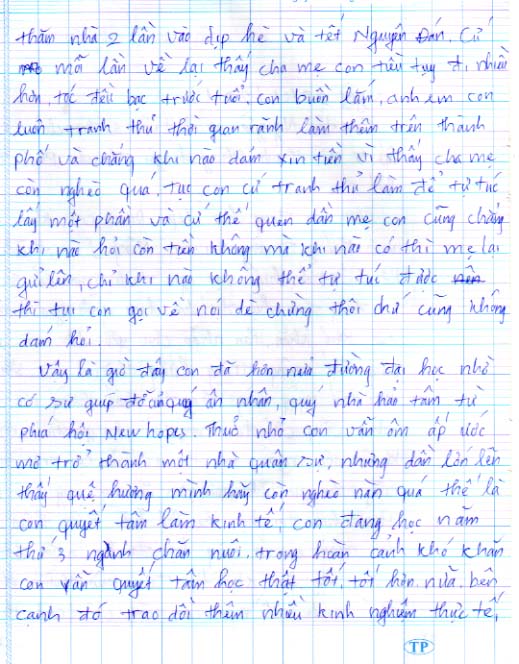 thăm nhà 2 lần vào dịp hè và tết Nguyên Đán. Cứ
mỗi lần về lại thấy cha mẹ con tiều tụy đi nhiều
hơn, tóc đều bạc trước tuổi, con buồn lắm, anh em con
luôn tranh thủ thời gian rảnh làm thêm trên thành
phố và chẳng khi nào dám xin tiền vì thấy cha mẹ
còn nghèo quá, tục con cứ tranh thủ làm để tự túc
lấy một phần và cứ thế quen dần mẹ con cũng chẳng
khi nào hỏi còn tiền không mà khi nào có thì mẹ lại
gửi lên, chỉ khi nào không thể tự túc được
thì tụi con gọi về nói dè chừng thôi chứ cũng không
dám hỏi.
Vậy là giờ đây con đã hơn nửa đường đại học nhờ
có sự giúp đỡ của quý ân nhân, quý nhà hảo tâm từ
phía hội Newhopes. Thuở nhỏ con vẫn ôm ấp ước
mơ trở thành một nhà quân sự, nhưng dần lớn lên
thấy quê hương mình hãy còn nghèo nàn quá thế là
con quyết tâm làm kinh tế, con đang học năm
thứ 3 ngành chăn nuôi, trong hoàn cảnh khó khăn
con vẫn quyết tâm học thật tốt, tốt hơn nữa, bên
cạnh đó trao dồi thêm nhiều kinh nghiệm thực tế,
TP